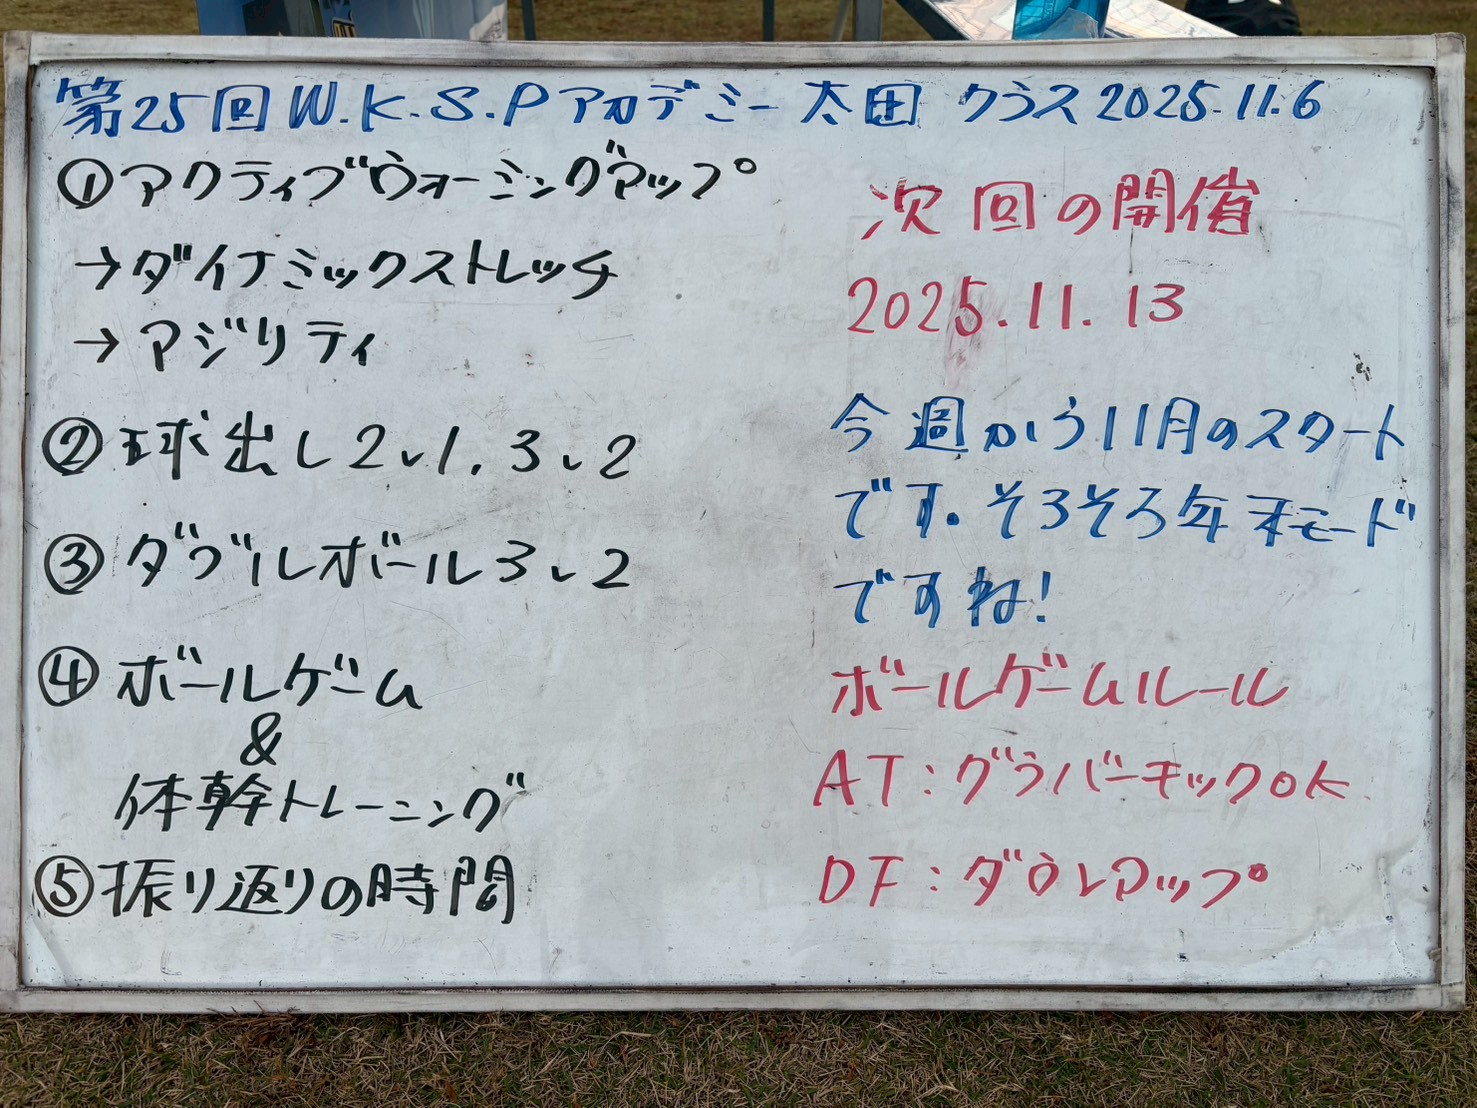 第25回 W.K.S.Pアカデミー 太田 クラス 2025.11.6
①アクティブウォーミングアップ
→ダイナミックストレッチ
→アジリティ
②球出し2v1.3v2
③ダブルボール3v2
④ボールゲーム
&
体幹トレーニング
⑤振り返りの時間
次回の開催
2025.11.13
今週から11月のスタート
です。そろそろ年末モード
ですね!
ボールゲームルール
AT:グラバーキックOK
DF:ダウンアップ